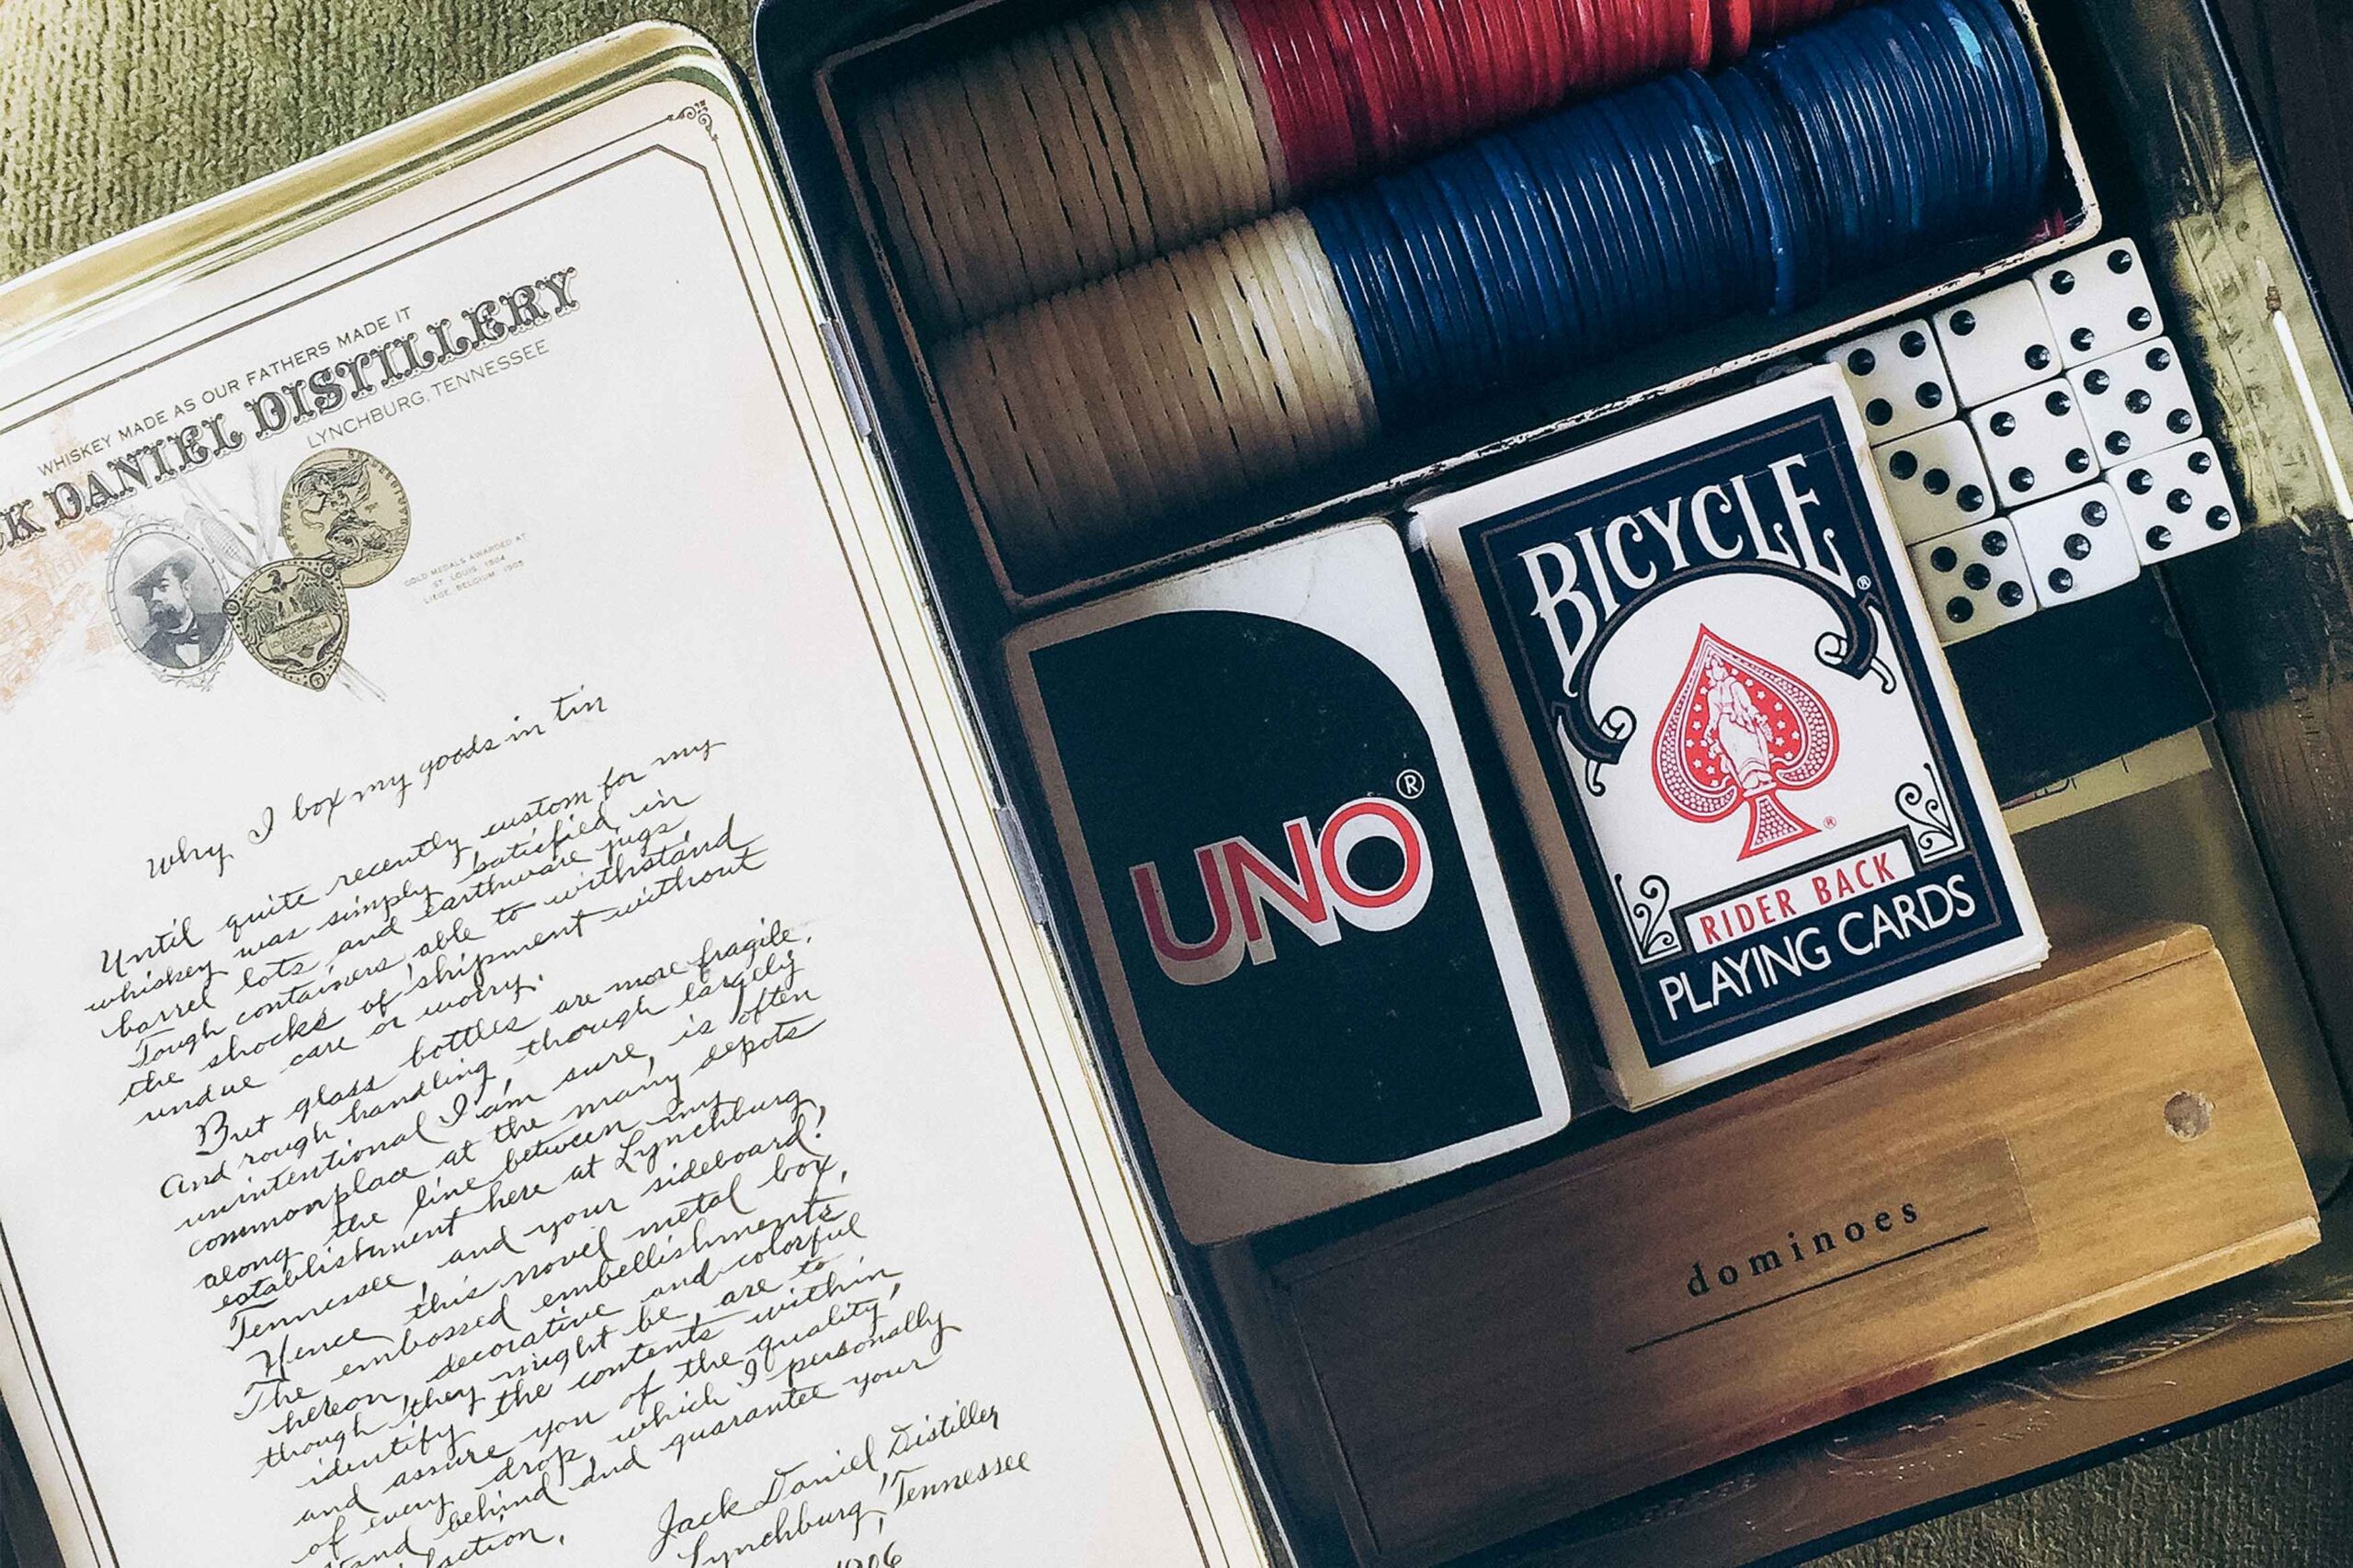 WHISKEY MADE AS OUR FATHERS MADE IT
CK DANIEL DISTILLERY
LYNCHBURG, TENNESSEE
GOLD MEDALS AWARDED AT
ST. LOUIS, 1904
LIEGE, BELGIUM, 1905
Why I box my goods in tin
Until quite recently custom for my
whiskey was simply satisfied, in
barrel lots and earthware jugs
Tough containers able to withstand
the shocks of shipment without
undue care or worry.
But glass bottles are more fragile,
And rough handling though largely
unintentional I am sure, is often
commonplace at the many depots
along the line between my
establishment here at Lynchburg
Tennessee, and your sideboard!
Hence this novel metal box,
The embossed embellishments
hereon, decorative and colorful
though they might be, are to
identify the contents within
and assure you of the quality,
of every drop, which I personally
stand behind and guarantee your
Jack Daniel Distiller
Lynchburg, Tennessee
1906
UNO®
BICYCLE®
®
RIDER BACK
PLAYING CARDS
dominoes